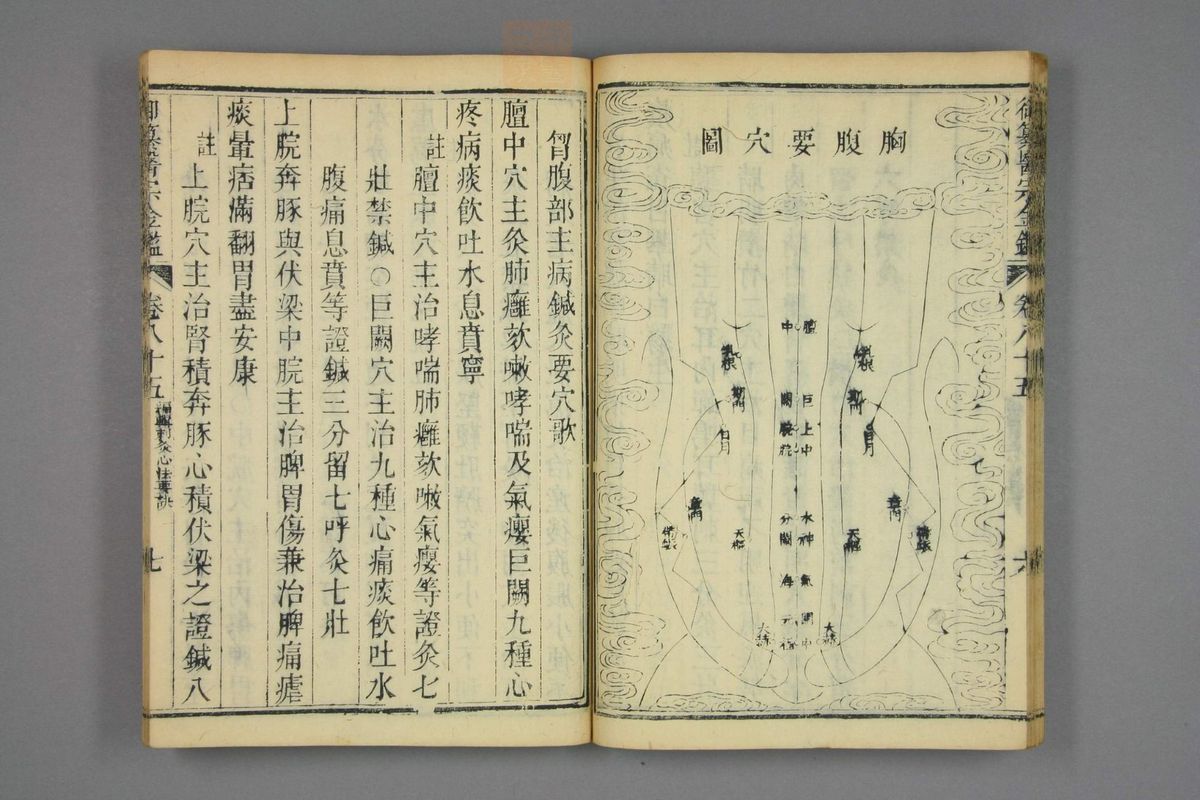 御纂醫宗金鑑
卷八十五
六
胸腹要穴圖
膻中
巨闕
上脘
中脘
水分
神闕
氣海
關元
中極
乳根
乳根
期門
期門
日月
日月
章門
章門
天樞
天樞
帶脉
帶脉
大赫
大赫
胷腹部主病鍼灸要穴歌
膻中穴主灸肺癰欬嗽哮喘及氣癭巨闕九種心
疼病痰飲吐水息賁寧
註膻中穴主治哮喘肺癰欬嗽氣癭等證灸七
壯禁鍼○巨闕穴主治九種心痛痰飲吐水
腹痛息賁等證鍼三分留七呼灸七壯
上脘奔豚與伏梁中脘主治脾胃傷兼治脾痛瘧
痰暈痞滿翻胃盡安康
註上脘穴主治腎積奔豚心積伏梁之證鍼八
御纂醫宗金鑑
卷八十五
編輯刺灸心法要訣
七